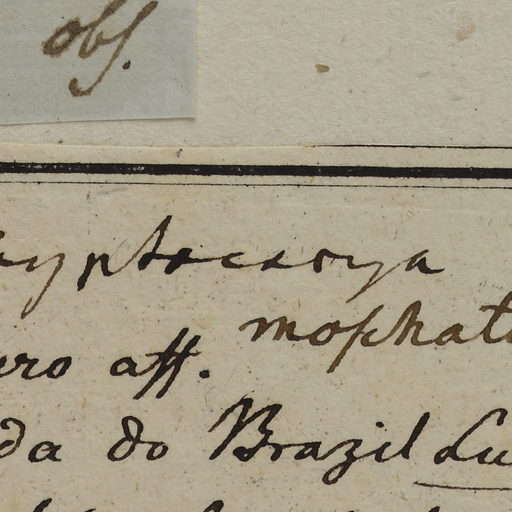 obs.
ryptocarya
moschata
uro aff.
da do Brazil Lu